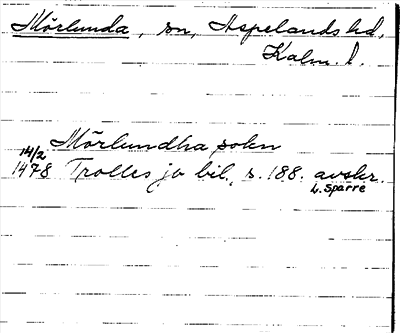 Mörlunda, sn, Aspelands hd,
Kalm. l.
Mörlundha sokn
14/2
1478 Trolles jb bil., s. 188. avskr.
L. Sparre